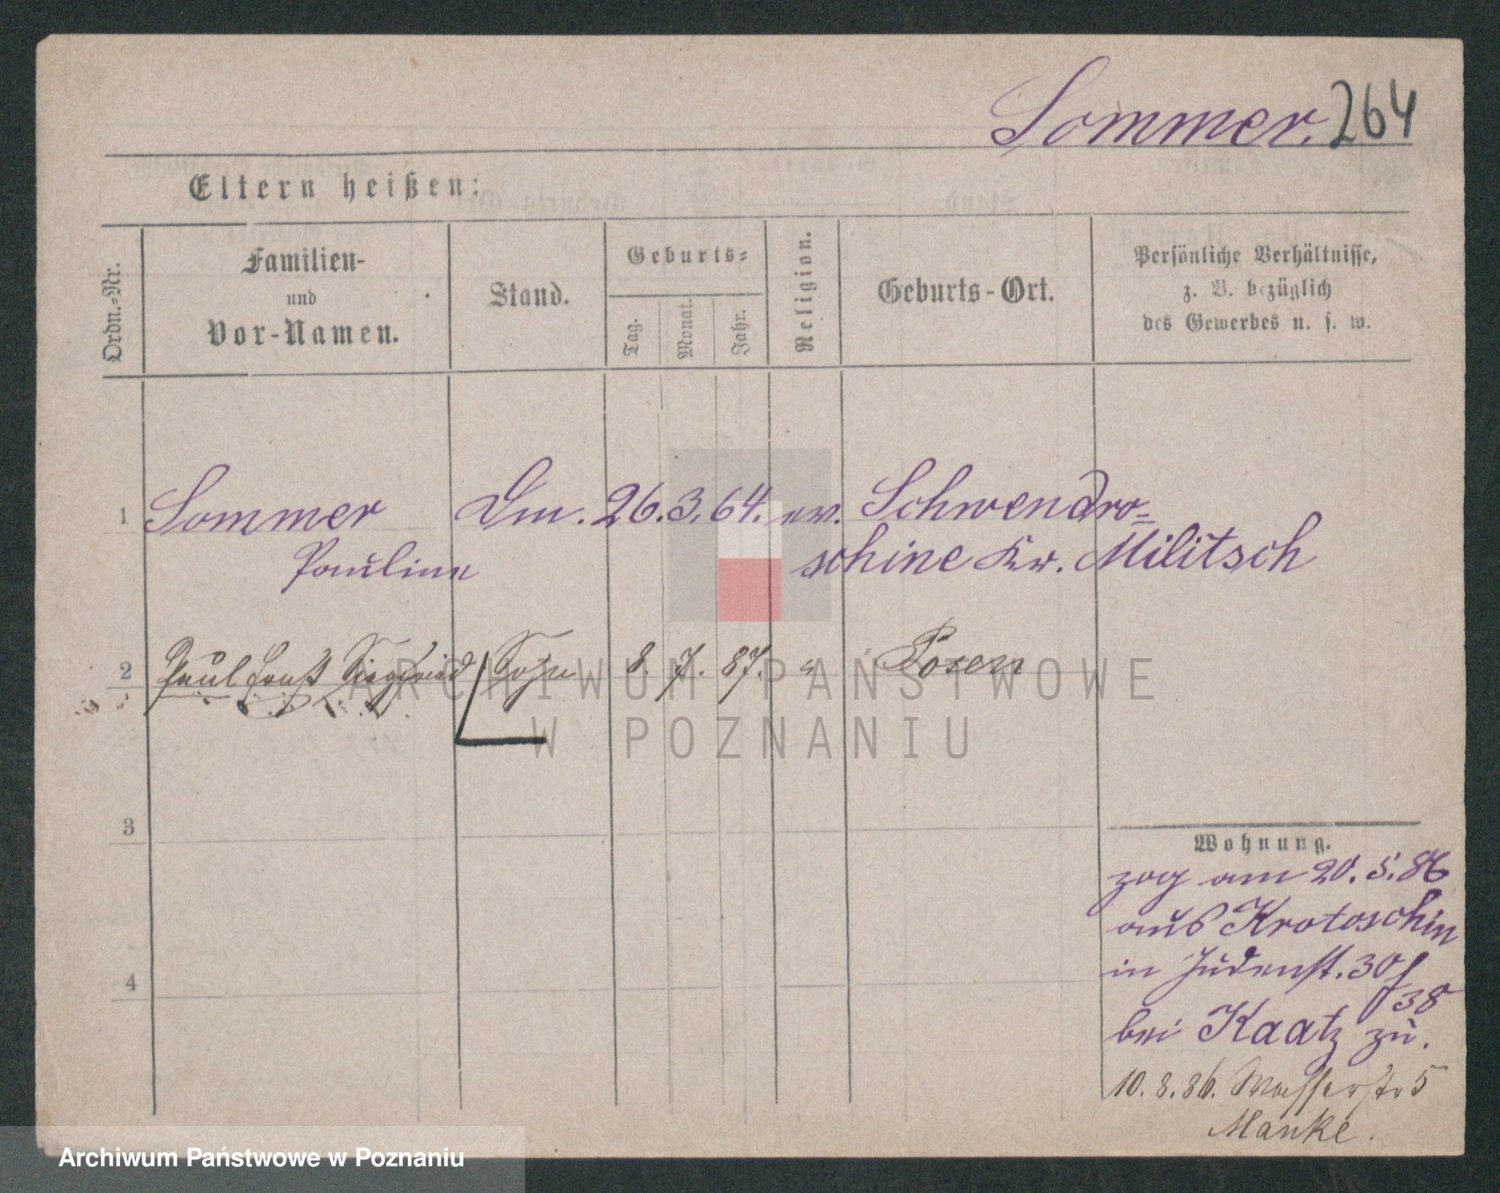 Sommer. 264
Eltern heißen:
Ordn.-Nr.
Familien-
und
Vor-Namen.
Stand.
Geburts-
Tag.
Monat.
Jahr.
Religion.
Geburts-Ort.
Persönliche Verhältnisse,
z. B. bezüglich
des Gewerbes u. s. w.
1 Sommer Dm. 26. 3. 64. ev. Schwendro-
Pauline schine Kr. Militsch
2 Paul Ernst Siegfried Sohn 8. 7. 87. " Posen
3
4
Wohnung.
zog am 20. 5. 86
aus Krotoschin
in Judenst. 30/
38
bei Kaatz zu.
10. 8. 86. Wasserstr 5
Manke.
ARCHIWUM PAŃSTWOWE
W POZNANIU
Archiwum Państwowe w Poznaniu